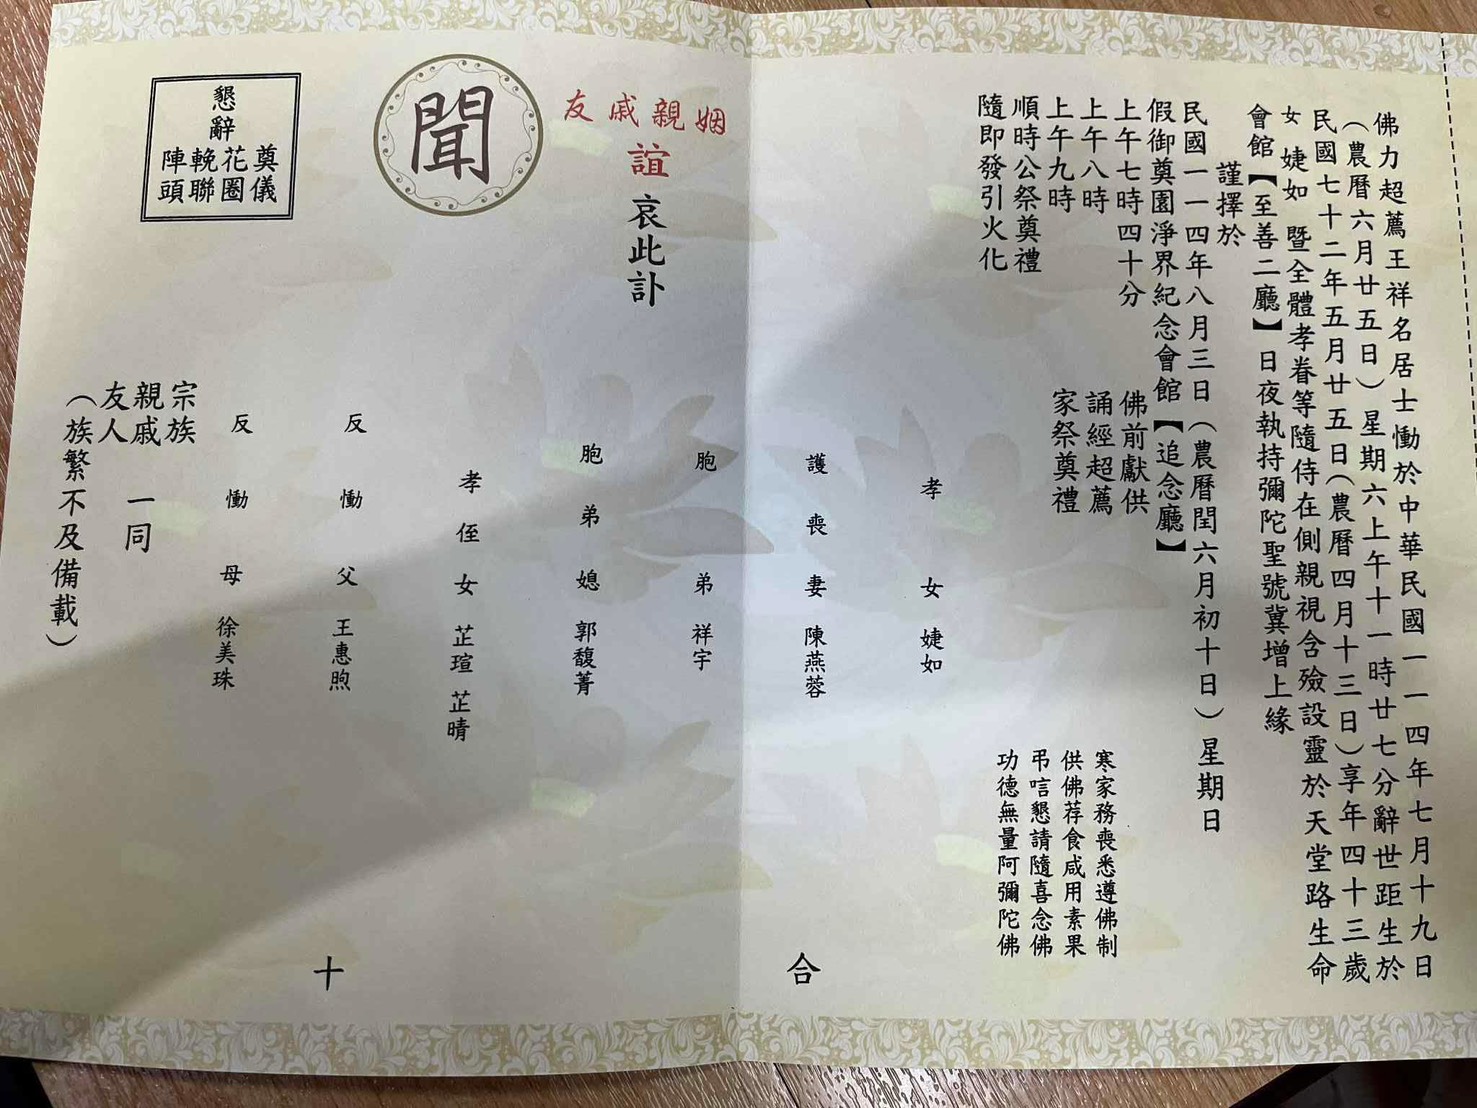 佛力超薦王祥名居士慟於中華民國一一四年七月十九日
（農曆六月廿五日）星期六上午十一時廿七分辭世距生於
民國七十二年五月廿五日（農曆四月十三日）享年四十三歲
女 婕如 暨全體孝眷等隨侍在側親視含殮設靈於天堂路生命
會館【至善二廳】日夜執持彌陀聖號冀增上緣
謹擇於
民國一一四年八月三日（農曆閏六月初十日）星期日
假御奠園淨界紀念會館【追念廳】
上午七時四十分 佛前獻供
上午八時 誦經超薦
上午九時 家祭奠禮
順時公祭奠禮
隨即發引火化
寒家務喪悉遵佛制
供佛荐食咸用素果
弔唁懇請隨喜念佛
功德無量阿彌陀佛
孝女 婕如
護喪妻 陳燕蓉
姻親戚友
誼
哀此訃
聞
胞弟 祥宇
胞弟媳 郭馥菁
孝侄女 芷瑄 芷晴
反慟父 王惠煦
反慟母 徐美珠
宗族
親戚 一同
友人
（族繁不及備載）
懇辭
奠儀
花圈
輓聯
陣頭
合
十